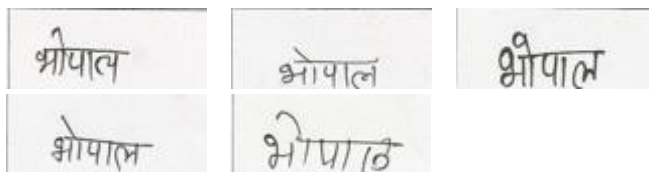 भोपाल भोपाल भोपाल
भोपाल भोपाल